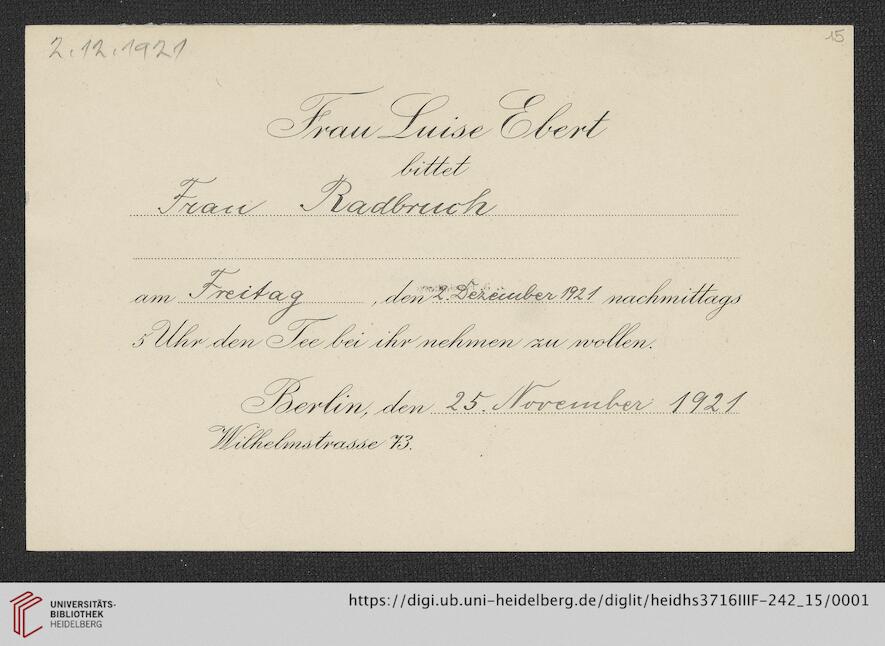 2.12.1921
15
Frau Luise Ebert
bittet
Frau Radbruch
am Freitag, den 2. Dezember 1921 nachmittags
5 Uhr den Tee bei ihr nehmen zu wollen.
Berlin, den 25. November 1921
Wilhelmstrasse 73.
UNIVERSITÄTS-
BIBLIOTHEK
HEIDELBERG
https://digi.ub.uni-heidelberg.de/diglit/heidhs3716IIIF-242_15/0001